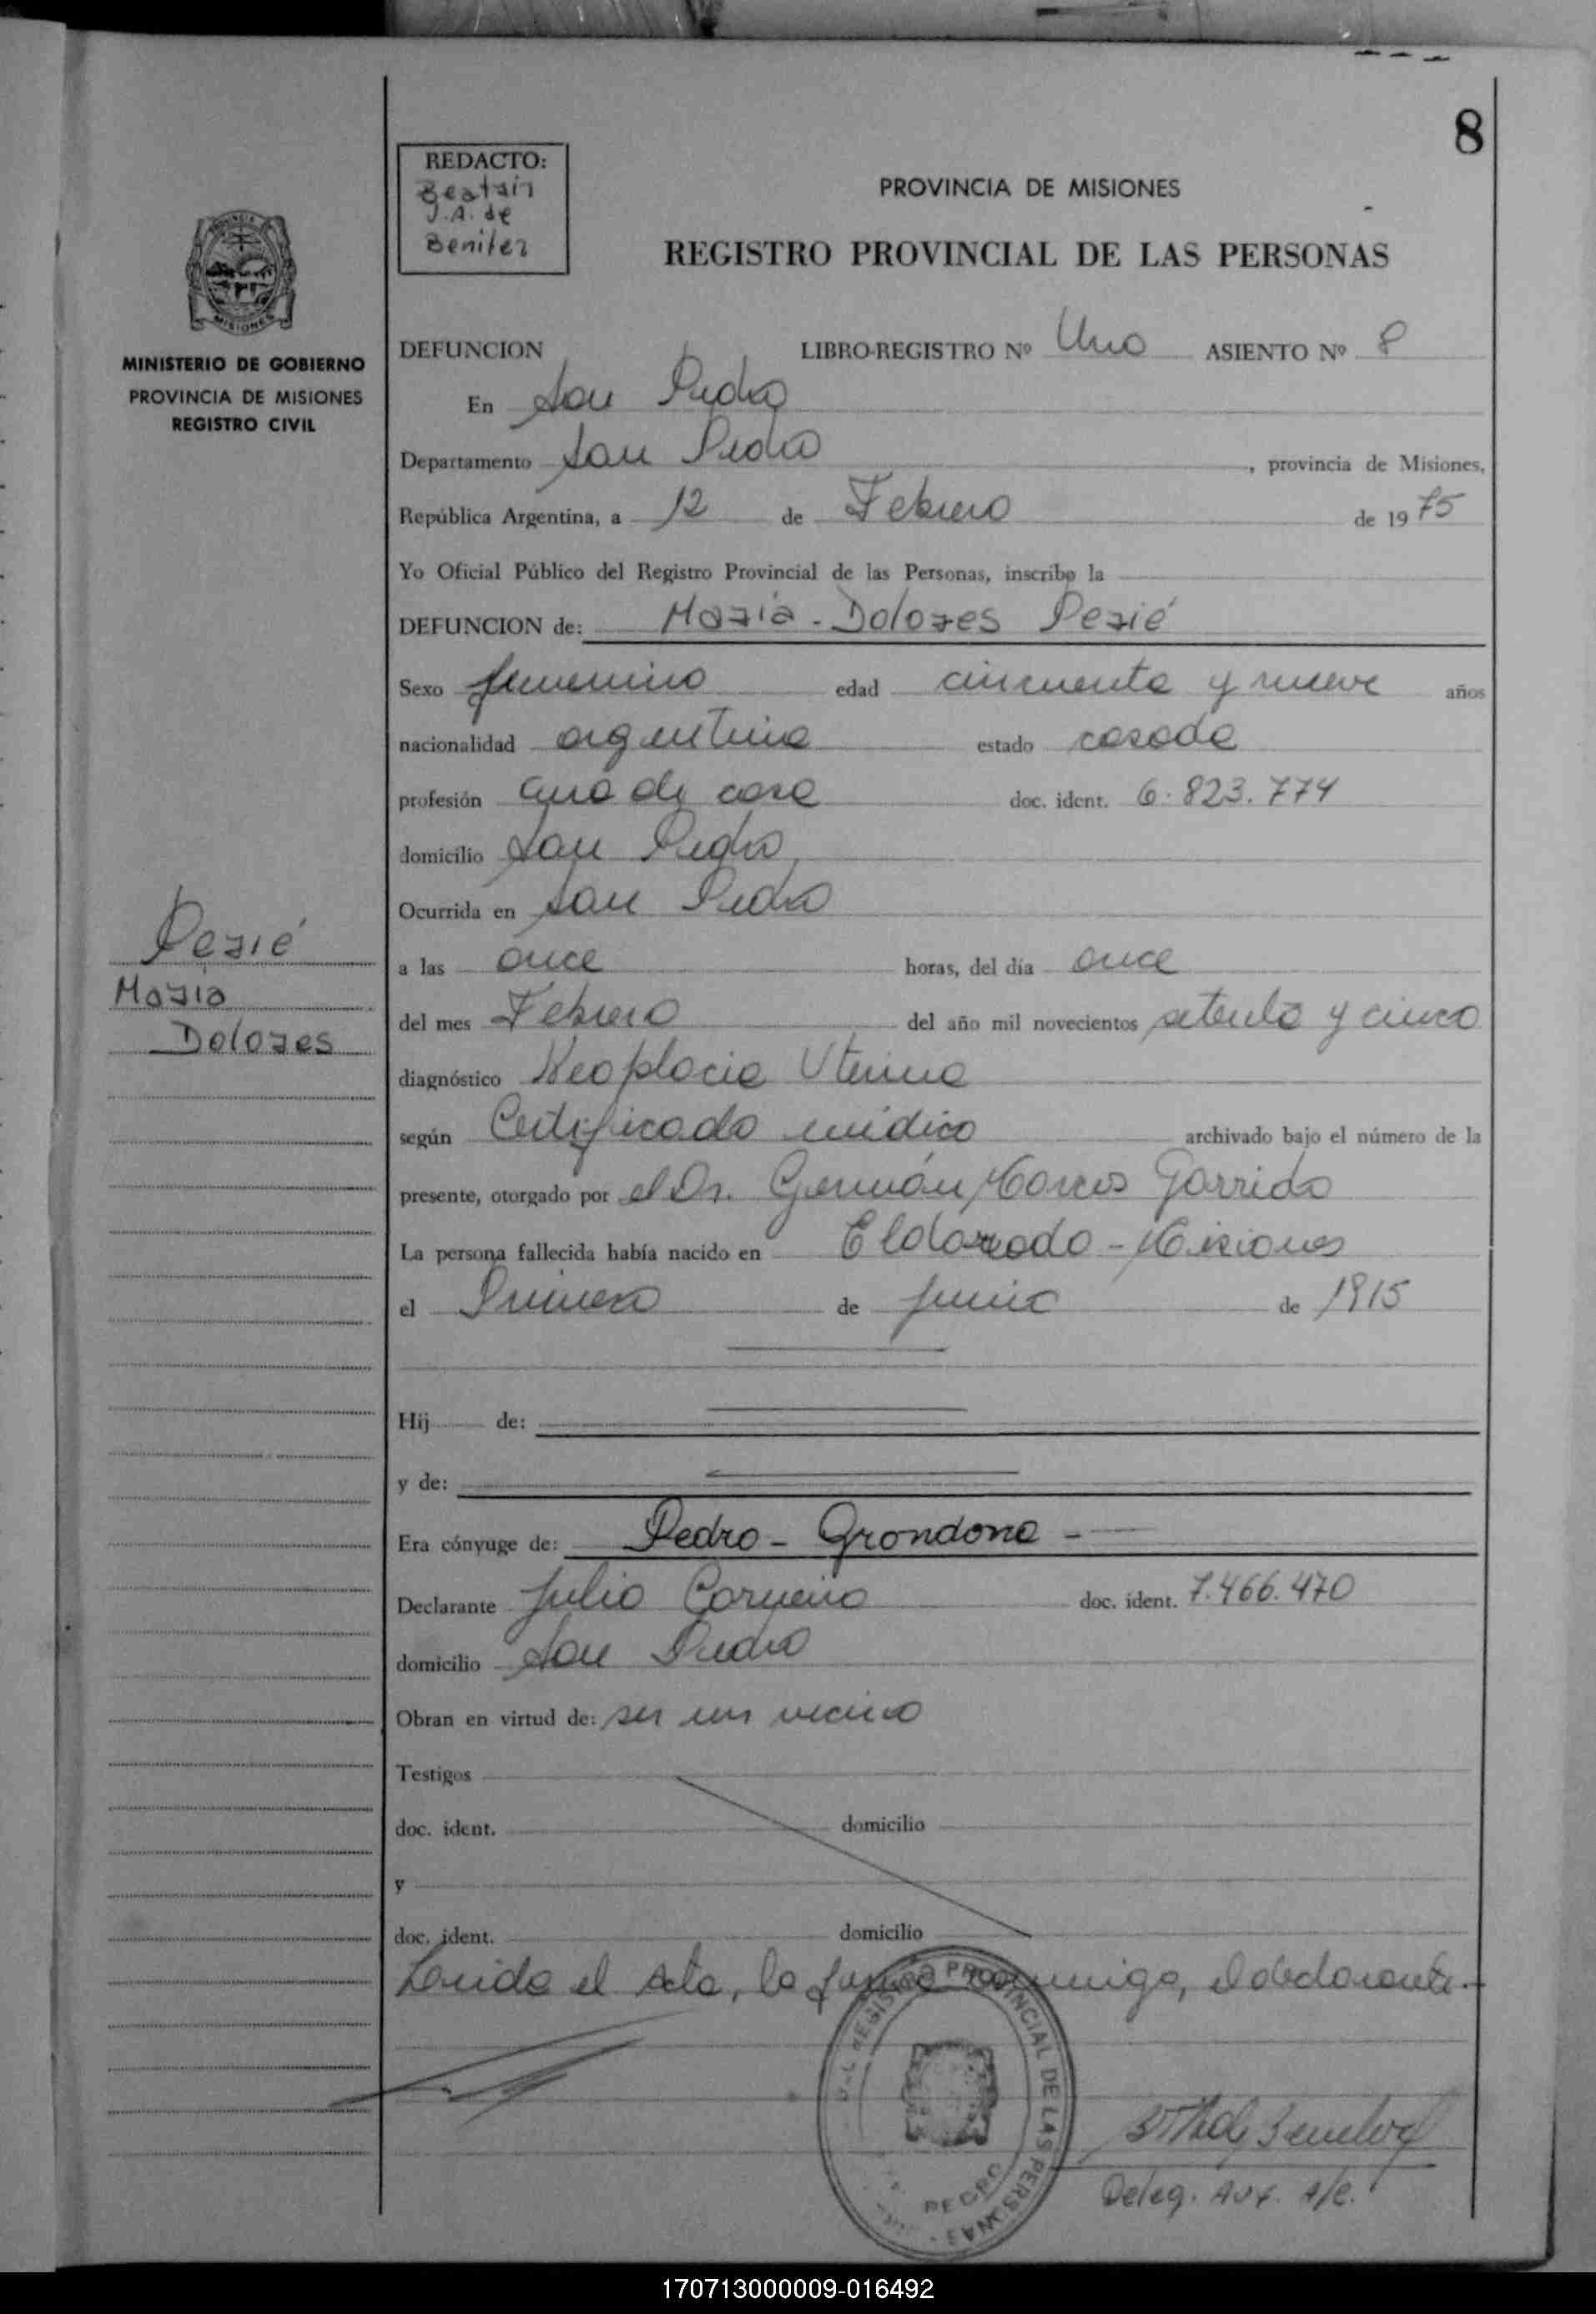 8
REDACTO:
Beatriz
J. A. de
Benitez
PROVINCIA DE MISIONES
REGISTRO PROVINCIAL DE LAS PERSONAS
MISIONES
MINISTERIO DE GOBIERNO
PROVINCIA DE MISIONES
REGISTRO CIVIL
DEFUNCION LIBRO-REGISTRO Nº Uno ASIENTO Nº 8
En San Pedro
Departamento San Pedro, provincia de Misiones,
República Argentina, a 12 de Febrero de 1975
Yo Oficial Público del Registro Provincial de las Personas, inscribo la
DEFUNCION de: María - Dolores Perié
Sexo femenino edad cincuenta y nueve años
nacionalidad argentina estado casada
profesión ama de casa doc. ident. 6.823.774
domicilio San Pedro
Ocurrida en San Pedro
Perié
María
Dolores
a las once horas, del día once
del mes Febrero del año mil novecientos setenta y cinco
diagnóstico Neoplacia Uterina
según Certificado médico archivado bajo el número de la
presente, otorgado por el Dr. Germán Marcos Garrido
La persona fallecida había nacido en Eldorado - Misiones
el Primero de junio de 1915
Hij de:
y de:
Era cónyuge de: Pedro - Grondona -
Declarante Julio doc. ident. 7.466.470
domicilio San Pedro
Obran en virtud de: ser un vecino
Testigos
doc. ident. domicilio
y
doc. ident. domicilio
Leida el Acta, la firma conmigo, el declarante.-
REGISTRO PROVINCIAL DE LAS PERSONAS
PEDRO
Deleg. Aux. A/C.
170713000009-016492